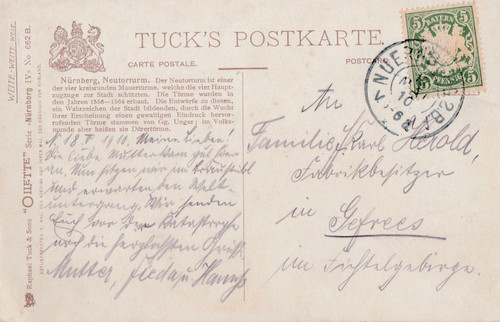 TUCK'S POSTKARTE.
CARTE POSTALE.
POSTCARD
BAYERN
5 5
PFENNIG
Nürnberg, Neutorturm. Der Neutorturm ist einer
der vier kreisrunden Mauertürme, welche die vier Haupt-
zugänge zur Stadt schützten. Die Türme wurden in
den Jahren 1556—1564 erbaut. Die Entwürfe zu diesen,
ein Wahrzeichen der Stadt bildenden, durch die Wucht
ihrer Erscheinung einen gewaltigen Eindruck hervor-
rufenden Türme stammen von Gg. Unger; im Volks-
munde aber heißen sie Dürertürme.
N. 18 V. 1910. Meine Lieben!
Die liebe Mutter kam gut hier
an. Nun sitzen wir im Bräustübl
und erwarten den Welt-
untergang. Wir senden
Euch vor der Katastrophe
noch die herzlichsten Grüße
Mutter, Frieda u. Hannes
An
Familie Karl Herold,
Fabrikbesitzer
in
Gefrees
im Fichtelgebirge.
"OILETTE" Serie Nürnberg IV. No. 662 B.
Raphael Tuck & Sons